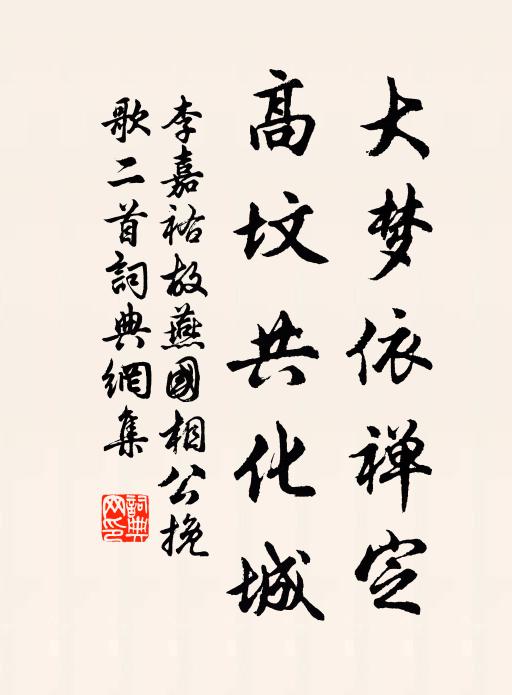 大梦依禅定
高坟共化城
李嘉祐故燕國相公挽
歌二首詞典網集
詞典
网印